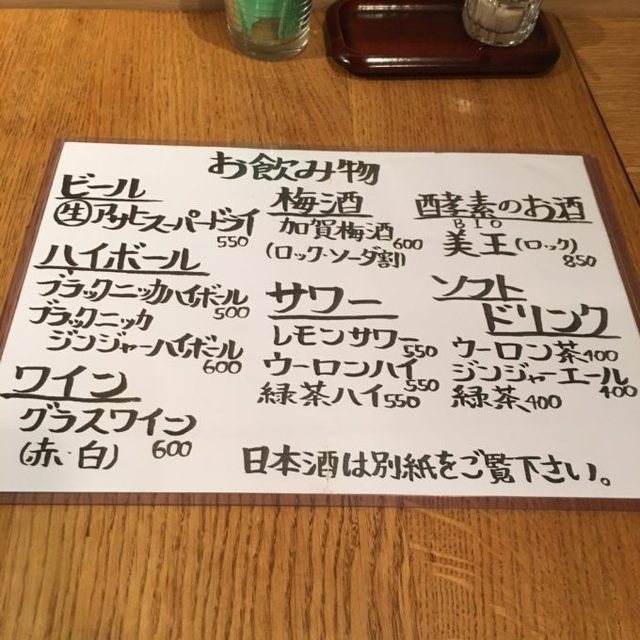 お飲み物
ビール
生 アサヒスーパードライ
550
ハイボール
ブラックニッカハイボール
500
ブラックニッカ
ジンジャーハイボール
600
ワイン
グラスワイン
(赤・白) 600
梅酒
加賀梅酒
600
(ロック・ソーダ割)
サワー
レモンサワー 550
ウーロンハイ 550
緑茶ハイ 550
酵素のお酒
BIO
美王(ロック)
850
ソフト
ドリンク
ウーロン茶 400
ジンジャーエール
400
緑茶 400
日本酒は別紙をご覧下さい。